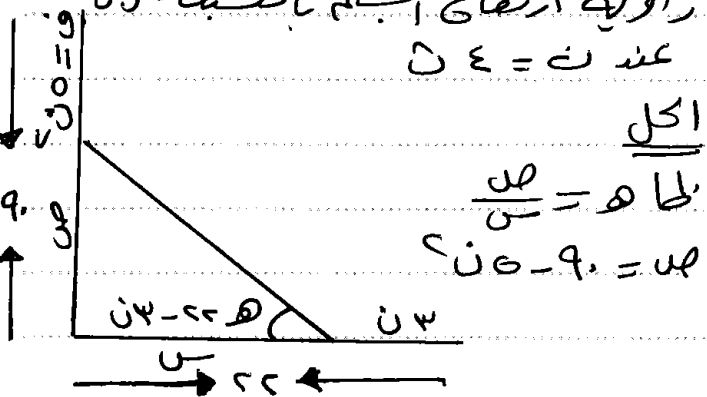 زاوية ارتفاع الجسم بالنسبة
عند ن = ٤ ث
الحل
ظا هـ = ص/س
ص = ٩٠ - ٥ن٢
ف = ٥ن٢
٩٠
ص
هـ
٢٢ - ٣ن
٣ن
س
٢٢